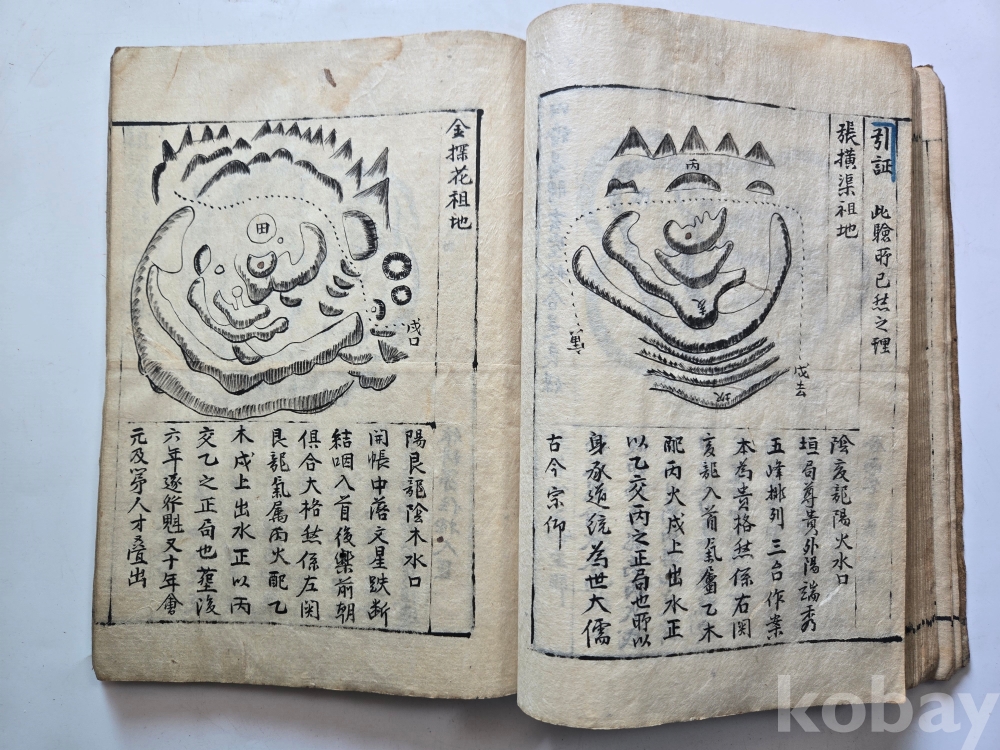 引証 此驗所已然之理
張橫渠祖地
丙
亥
坎
戌去
陰亥龍陽火水口
垣局尊貴外陽端秀
五峰排列三台作案
本為貴格然係右関
亥龍入首气屬乙木
配丙火戌上出水正
以乙交丙之正局也所以
身承道統為世大儒
古今宗仰
金探花祖地
田
戌口
陽艮龍陰木水口
開帳中落文星跌断
結咽入首後樂前朝
俱合大格然係左関
艮龍気属丙火配乙
木戌上出水正以丙
交乙之正局也塟後
六年逐發魁又十年會
元及第人才叠出
kobay